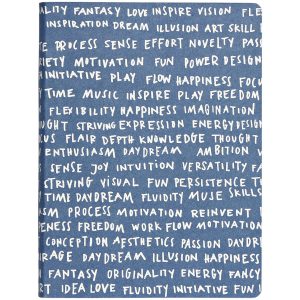 ALITY FANTASY LOVE INSPIRE VISION FLE
INSPIRATION DREAM ILLUSION ART SKILL
TE PROCESS SENSE EFFORT NOVELTY PASS
RIETY MOTIVATION FUN POWER DESIGN
INITIATIVE PLAY FLOW HAPPINESS FOCU
TIME MUSIC INSPIRE PLAY FREEDOM
FLEXIBILITY HAPPINESS IMAGINATION
OUGHT STRIVING EXPRESSION ENERGY DESIGN
US FLAIR DEPTH KNOWLEDGE THOUGHT
ENTHUSIASM DAYDREAM AMBITION V
SENSE JOY INTUITION VERSATILITY FA
STRIVING VISUAL FUN PERSISTENCE T
TIME DAYDREAM FLUIDITY MUSE SKILLS
ASM PROCESS MOTIVATION REINVENT
PENESS FREEDOM WORK FLOW MOTIVATION
CONCEPTION AESTHETICS PASSION DAYDR
RAGE DAYDREAM ILLUSION HAPPINESS
FANTASY ORIGINALITY ENERGY FANCY
ART IDEA LOVE FLUIDITY INITIATIVE FUN